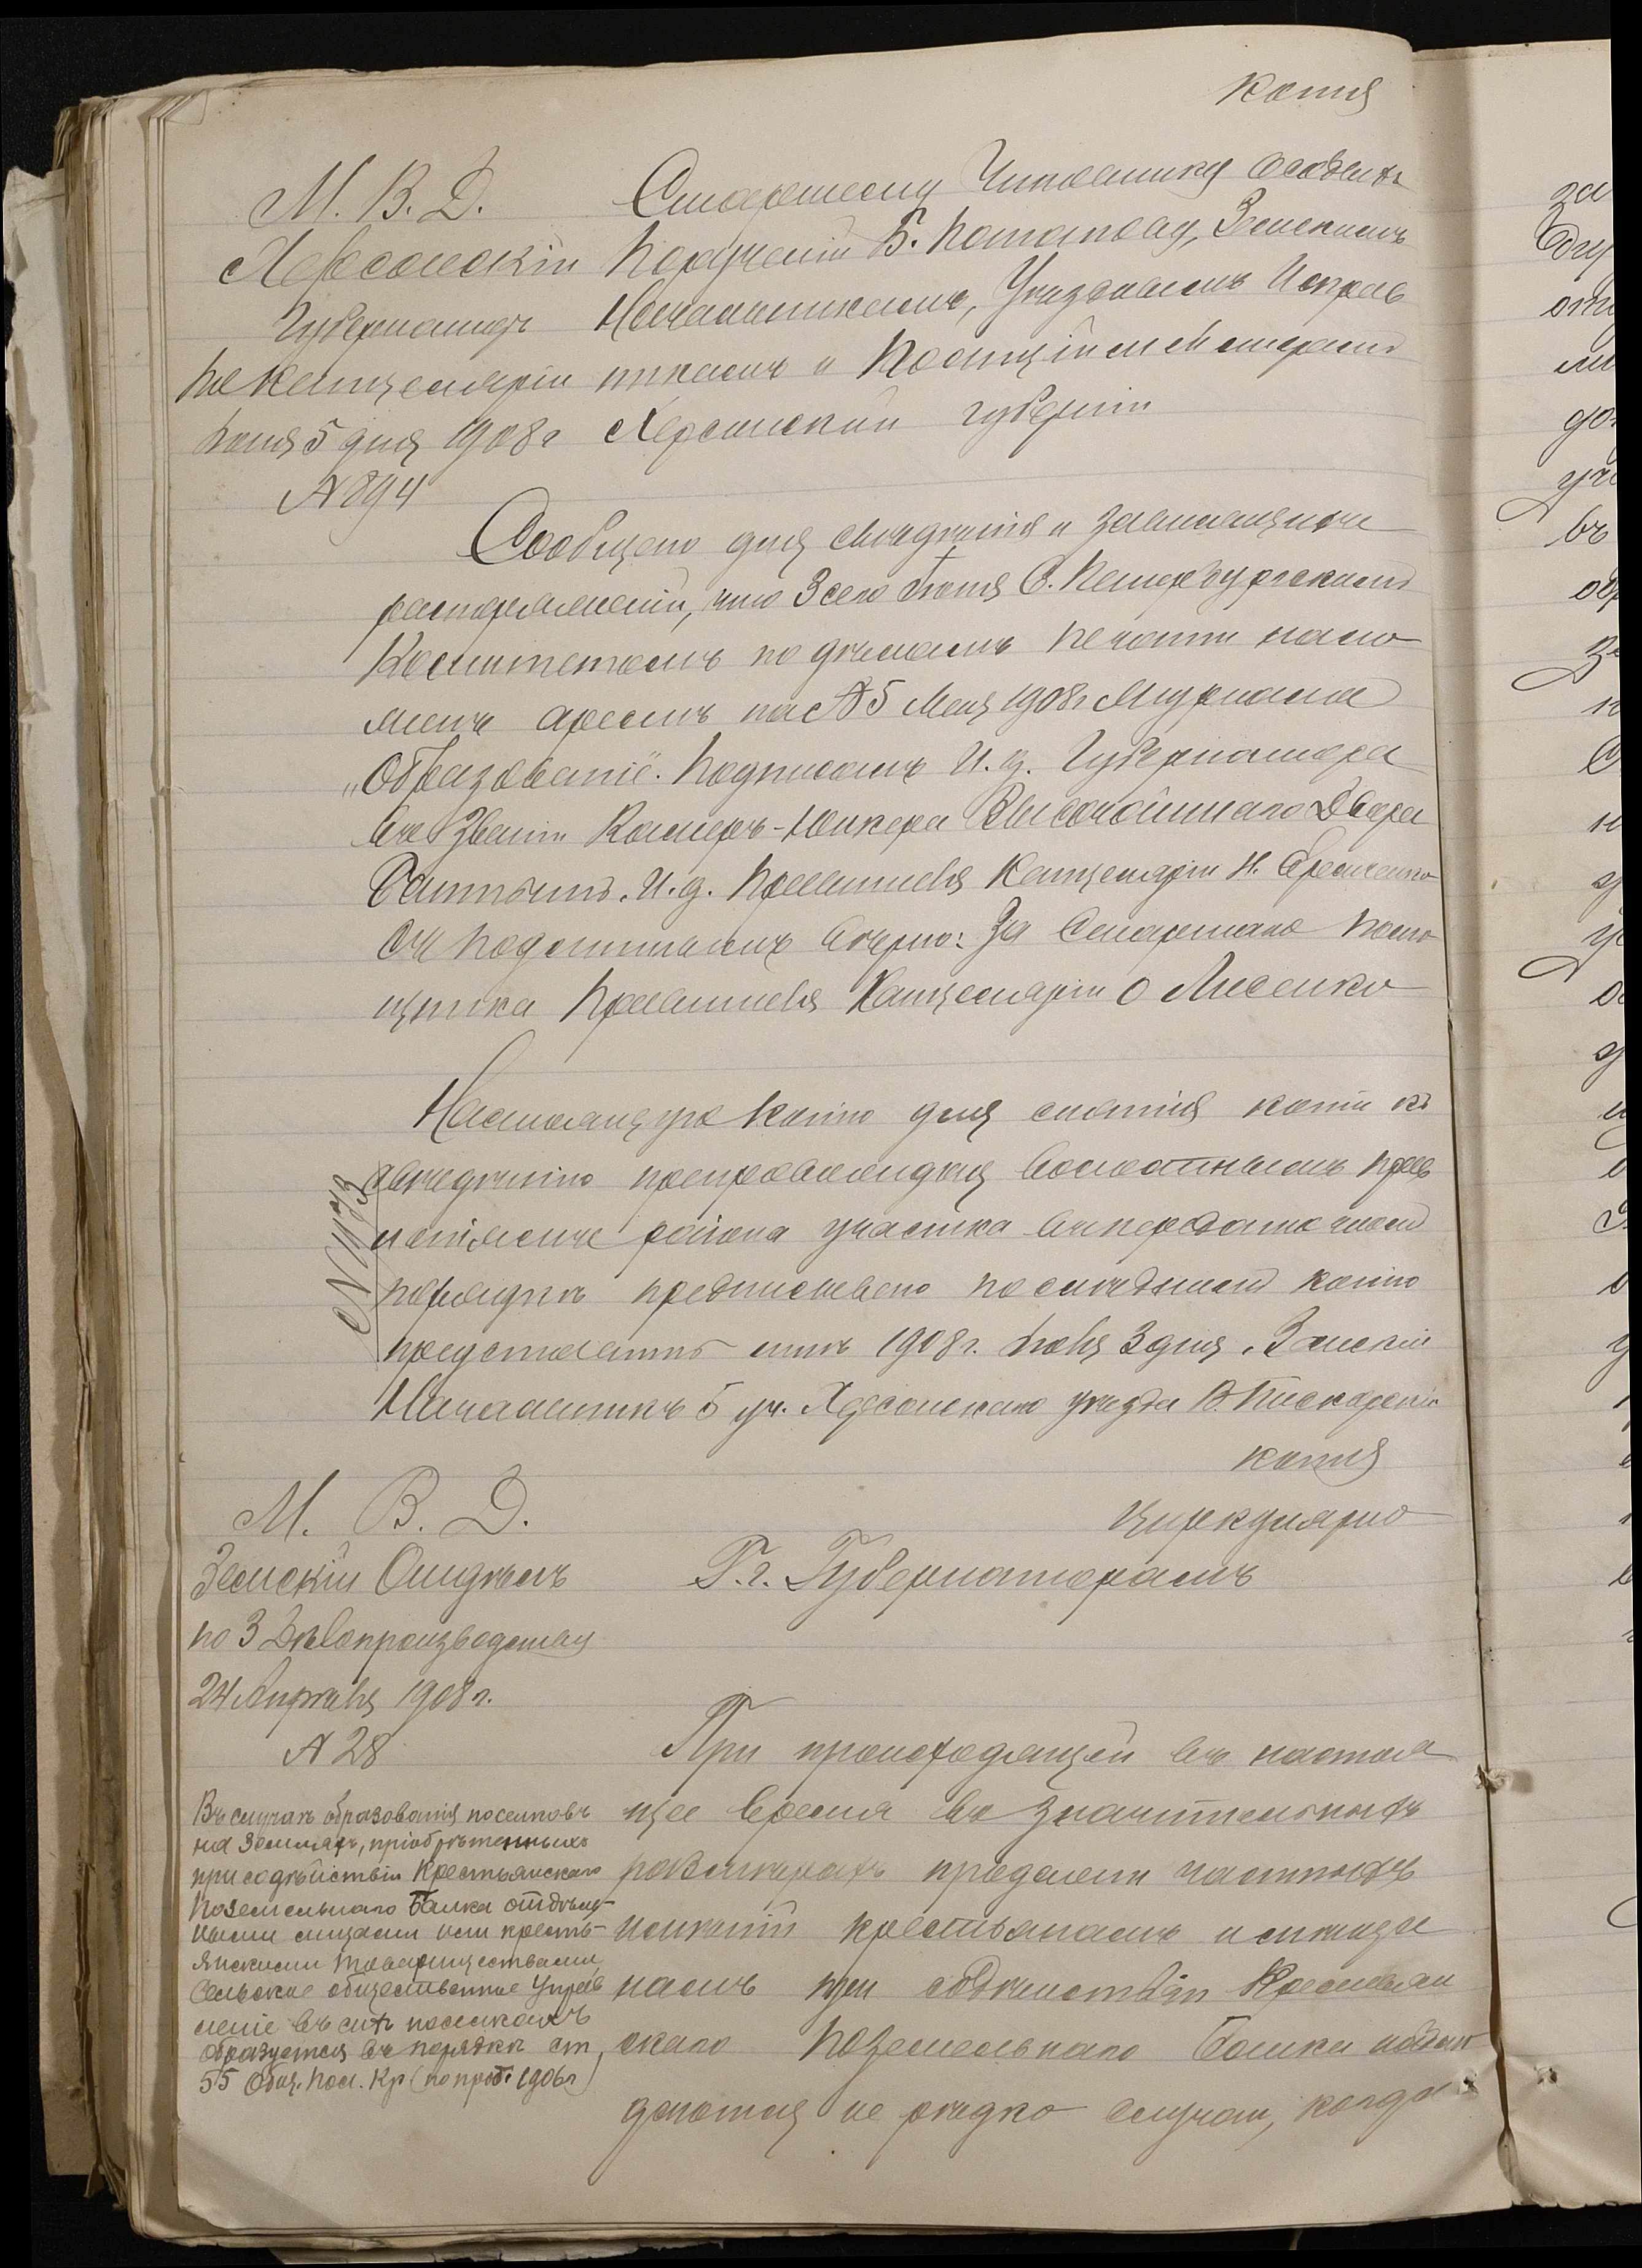 Копія
М. В. Д.
Херсонскій
Губернаторъ
По Канцеляріи
Іюня 5 дня 1908 г
№ 894
Старшему Чиновнику Особыхъ
Порученій Б. Потапову, Земскимъ
Начальникамъ, Уѣзднымъ Исправ
никамъ и Полиціймейстерамъ
Херсонской губерніи
Сообщено для свѣдѣнія и зависящихъ
распоряженій, что 3 сего Іюня С. Петербургскимъ
Комитетомъ по дѣламъ печати нало
женъ арестъ на № 5 Мая 1908 г Журнала
„Образованіе". Подписалъ И. д. Губернатора
въ Званіи Камеръ-Юнкера Высочайшаго Двора
И. д. Правителя Канцеляріи Н.
Съ подлиннымъ вѣрно: За Старшаго Помо
щника Правителя Канцеляріи О Лисенко
Настоящую копію для снятія копіи къ
свѣдѣнію препровождаю Волостнымъ прав
леніямъ района участка въ передаточномъ
порядкѣ предписываю послѣднему копію
представить мнѣ 1908 г. Іюня дня. Земскій
Начальникъ 5 уч. Херсонскаго уѣзда В.
№ 1173
копія
Циркулярно
М. В. Д.
Земскій Отдѣлъ
по 3 Дѣлопроизводству
24 Апрѣля 1908 г.
№ 28
Г.г. Губернаторамъ
Въ случаѣ образованія поселковъ
на земляхъ, пріобрѣтенныхъ
при содѣйствіи Крестьянскаго
Поземельнаго Банка отдѣль-
ными лицами или кресть-
янскими товариществами,
Сельское общественное Управ
леніе въ сихъ поселкахъ
образуется въ порядкѣ ст,
55 Общ. Пол. Кр (по прод. 1906 г)
При происходящей въ настоя
щее время въ значительныхъ
размѣрахъ продажи частныхъ
имѣній крестьянамъ и мѣща
намъ при содѣйствіи Крестьян
скаго Поземельнаго Банка наблю
даются не рѣдко случаи, когда